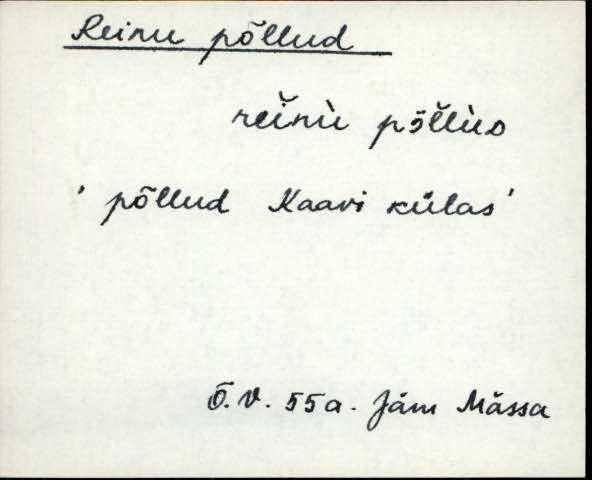 Reinu põllud
reinù põllùᴅ
' põllud Kaavi külas'
Õ.V. 55a. Jäm Mässa